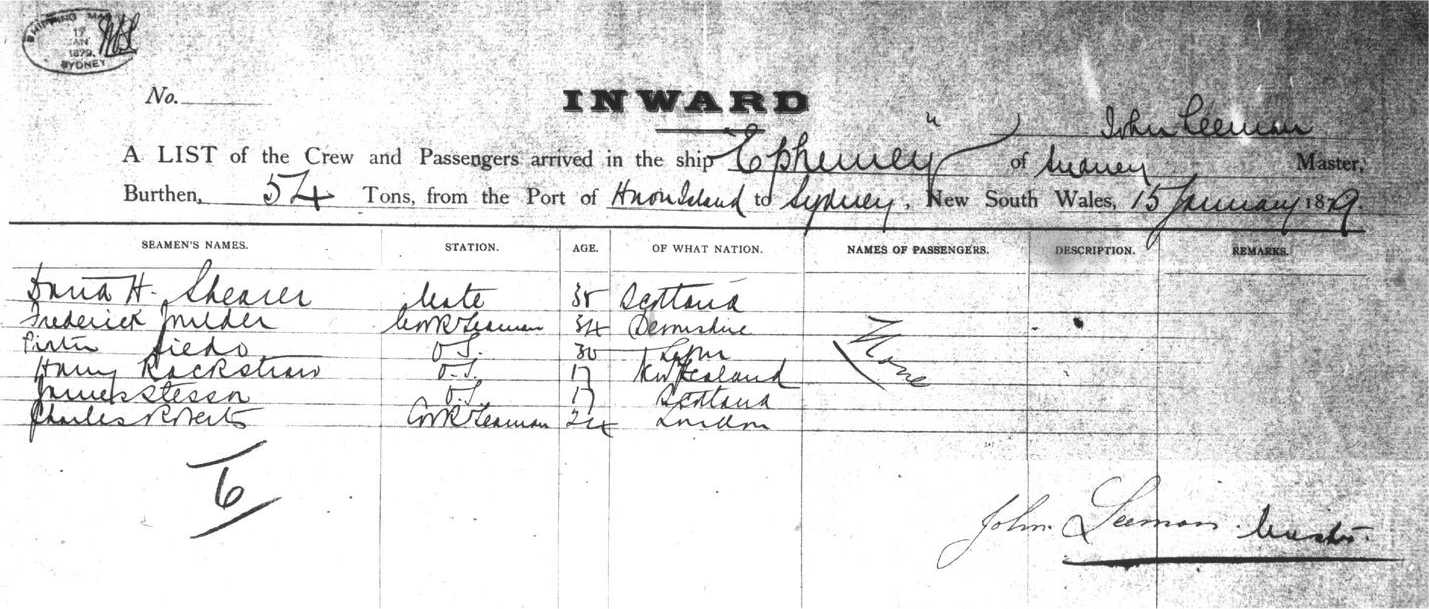 SHIPPING MAS
17
JAN
1879
SYDNEY
No.
INWARD
John Leeman
A LIST of the Crew and Passengers arrived in the ship "Ephemey" of Sydney Master,
Burthen, 54 Tons, from the Port of Huon Island to Sydney, New South Wales, 15 January 1879.
SEAMEN'S NAMES. STATION. AGE. OF WHAT NATION. NAMES OF PASSENGERS. DESCRIPTION. REMARKS.
David H. Shearer Mate 35 Scotland
Frederick Cook & Seaman 34 Devonshire
O.S. 30
Harry Rackstraw O.S. 17 New Zealand
James O.S. 17 Scotland
Charles Roberts Cook & Seaman 24 London
None
6
John Leeman Master.